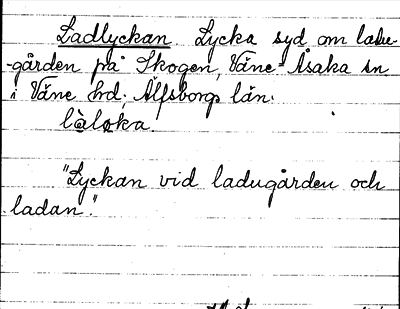 Ladlyckan. Lycka syd om ladu-
-gården på Skogen, Väne-Åsaka sn
i Väne hd, Älfsborgs län.
làloka.
"Lyckan vid ladugården och
ladan."